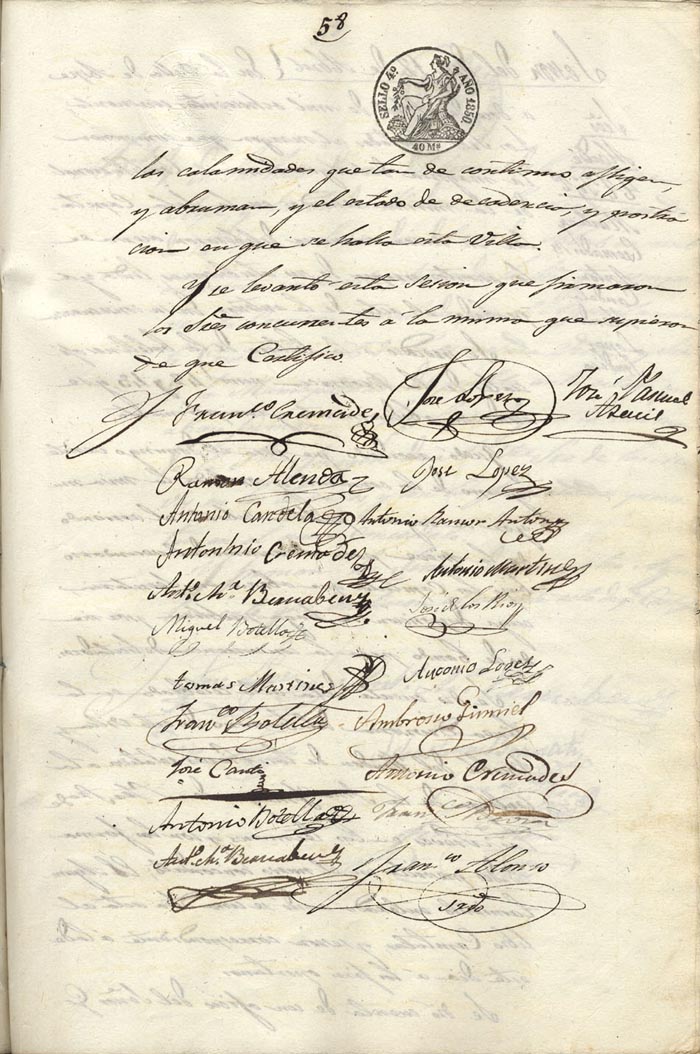 58
SELLO 4º AÑO 1850
40 Ms
las calamidades que tan de continuo afligen,
y abruman, y el estado de decadencia, y postra
cion en que se halla esta Villa.
Y se levantó esta Sesion que firmaron
los Sres concurrentes á la misma que supieron
de que Certifico
Franco Cremades
José Lopez
José Pascual
Ramon Alenda
José Lopez
Antonio Candela
Antonio Ramon Antonio
Antonio Cremades
Antonio Martinez
Anto Ma Bernabeu
José de los Rios
Miguel Botella
Tomas Martinez
Antonio Lopez
Franco Botella
Ambrosio Gumiel
José Cantó
Antonio Cremades
Antonio Botella
Franco
Anto Ma Bernabeu
Franco Alonso
Srio